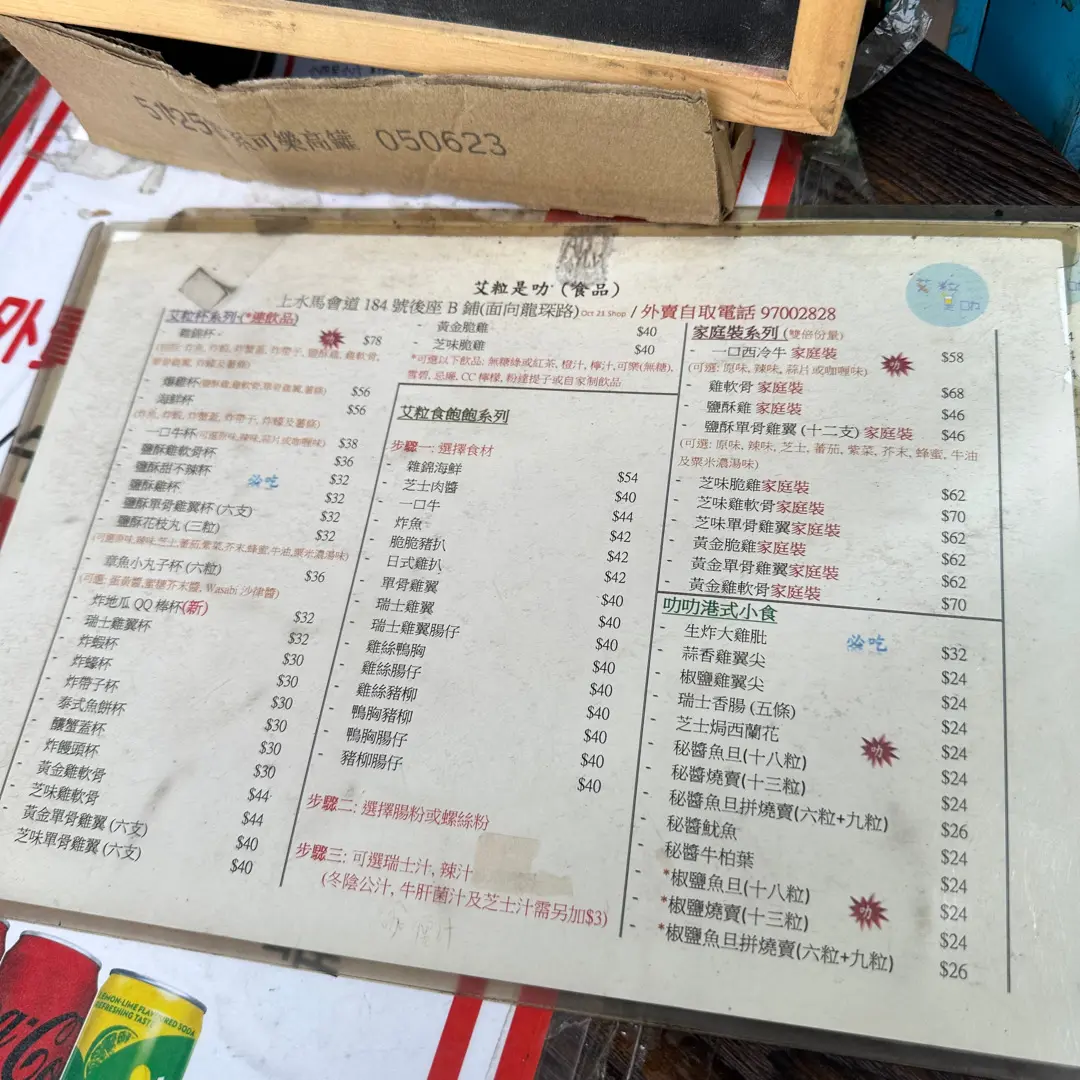 050623
艾粒是叻 (食品)
上水馬會道 184 號後座 B 鋪(面向龍琛路) Oct 21 Shop / 外賣自取電話 97002828
艾粒杯系列 (*連飲品)
- 雜錦杯 $78
- 爆雞杯 $56
- 海鮮杯 $56
- 一口牛杯(可選原味,辣味,蒜片或咖喱味) $38
- 鹽酥雞軟骨杯 $36
- 鹽酥甜不辣杯 $32
- 鹽酥雞杯 $32
- 鹽酥單骨雞翼杯 (六支) $32
- 鹽酥花枝丸 (三粒) $32
(可選原味,辣味,芝士,蕃茄,紫菜,芥末,蜂蜜,牛油,粟米濃湯味)
- 章魚小丸子杯 (六粒) $36
(可選: 蛋黃醬,蜜糖芥末醬, Wasabi 沙律醬)
- 炸地瓜 QQ 棒杯(新) $32
- 瑞士雞翼杯 $32
- 炸蝦杯 $30
- 炸蠔杯 $30
- 炸帶子杯 $30
- 泰式魚餅杯 $30
- 釀蟹蓋杯 $30
- 炸饅頭杯 $30
- 黃金雞軟骨 $44
- 芝味雞軟骨 $44
- 黃金單骨雞翼 (六支) $40
- 芝味單骨雞翼 (六支) $40
- 黃金脆雞 $40
- 芝味脆雞 $40
*可選以下飲品: 無糖綠或紅茶, 橙汁, 檸汁,可樂(無糖),
雪碧, 忌廉, CC 檸檬, 粉達提子或自家制飲品
艾粒食飽飽系列
步驟一: 選擇食材
- 雜錦海鮮 $54
- 芝士肉醬 $40
- 一口牛 $44
- 炸魚 $42
- 脆脆豬扒 $42
- 日式雞扒 $42
- 單骨雞翼 $40
- 瑞士雞翼 $40
- 瑞士雞翼腸仔 $40
- 雞絲鴨胸 $40
- 雞絲腸仔 $40
- 雞絲豬柳 $40
- 鴨胸豬柳 $40
- 鴨胸腸仔 $40
- 豬柳腸仔 $40
步驟二: 選擇腸粉或螺絲粉
步驟三: 可選瑞士汁, 辣汁
(冬陰公汁, 牛肝菌汁及芝士汁需另加$3)
家庭裝系列 (雙倍份量)
- 一口西冷牛 家庭裝 $58
(可選: 原味, 辣味, 蒜片或咖喱味)
- 雞軟骨 家庭裝 $68
- 鹽酥雞 家庭裝 $46
- 鹽酥單骨雞翼 (十二支) 家庭裝 $46
(可選: 原味, 辣味, 芝士, 蕃茄, 紫菜, 芥末, 蜂蜜, 牛油
及粟米濃湯味)
- 芝味脆雞家庭裝 $62
- 芝味雞軟骨家庭裝 $70
- 芝味單骨雞翼家庭裝 $62
- 黃金脆雞家庭裝 $62
- 黃金單骨雞翼家庭裝 $62
- 黃金雞軟骨家庭裝 $70
叻叻港式小食
- 生炸大雞肶 $32
- 蒜香雞翼尖 $24
- 椒鹽雞翼尖 $24
- 瑞士香腸 (五條) $24
- 芝士焗西蘭花 $24
- 秘醬魚旦(十八粒) $24
- 秘醬燒賣(十三粒) $24
- 秘醬魚旦拼燒賣(六粒+九粒) $26
- 秘醬魷魚 $24
- 秘醬牛柏葉 $24
- *椒鹽魚旦(十八粒) $24
- *椒鹽燒賣(十三粒) $24
- *椒鹽魚旦拼燒賣(六粒+九粒) $26
叻
LEMON-LIME FLAVOURED SODA
REFRESHING TASTE